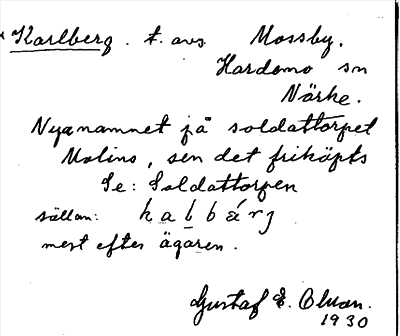 Karlberg. t. avs. Mossby.
Hardemo sn
Närke.
Nya namnet på soldattorpet
Molins, sen det friköpts
Se: Soldattorpen
sällan: kalbbárj
mest efter ägaren.
Gustaf E. Olsson.
1930